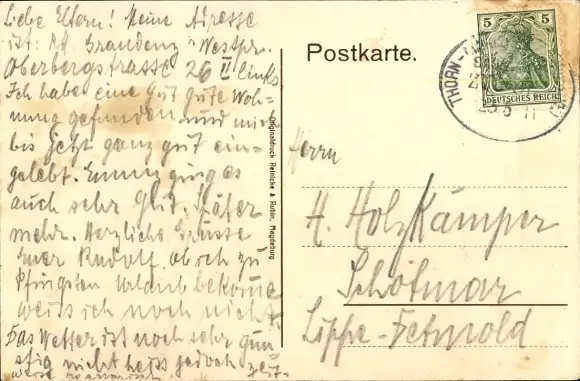 Liebe Eltern! Meine Adresse
ist: Graudenz Westpr.
Oberbergstrasse 26 II links
Ich habe eine gut gute Woh-
nung gefunden und mich
bis jetzt ganz gut ein-
gelebt. ging es
auch sehr gut. Später
mehr. Herzliche Grüsse
Euer Rudolf, ob ich zu
Pfingsten Urlaub bekomme
weiss ich noch nicht.
Das Wetter ist noch sehr gün-
stig nicht heiss jedoch zeit-
weise
Originaldruck Reinicke & Rubin, Magdeburg
Postkarte.
5 5
DEUTSCHES REICH
THORN
Herrn
H. Holzkämper
Schötmar
Lippe-Detmold